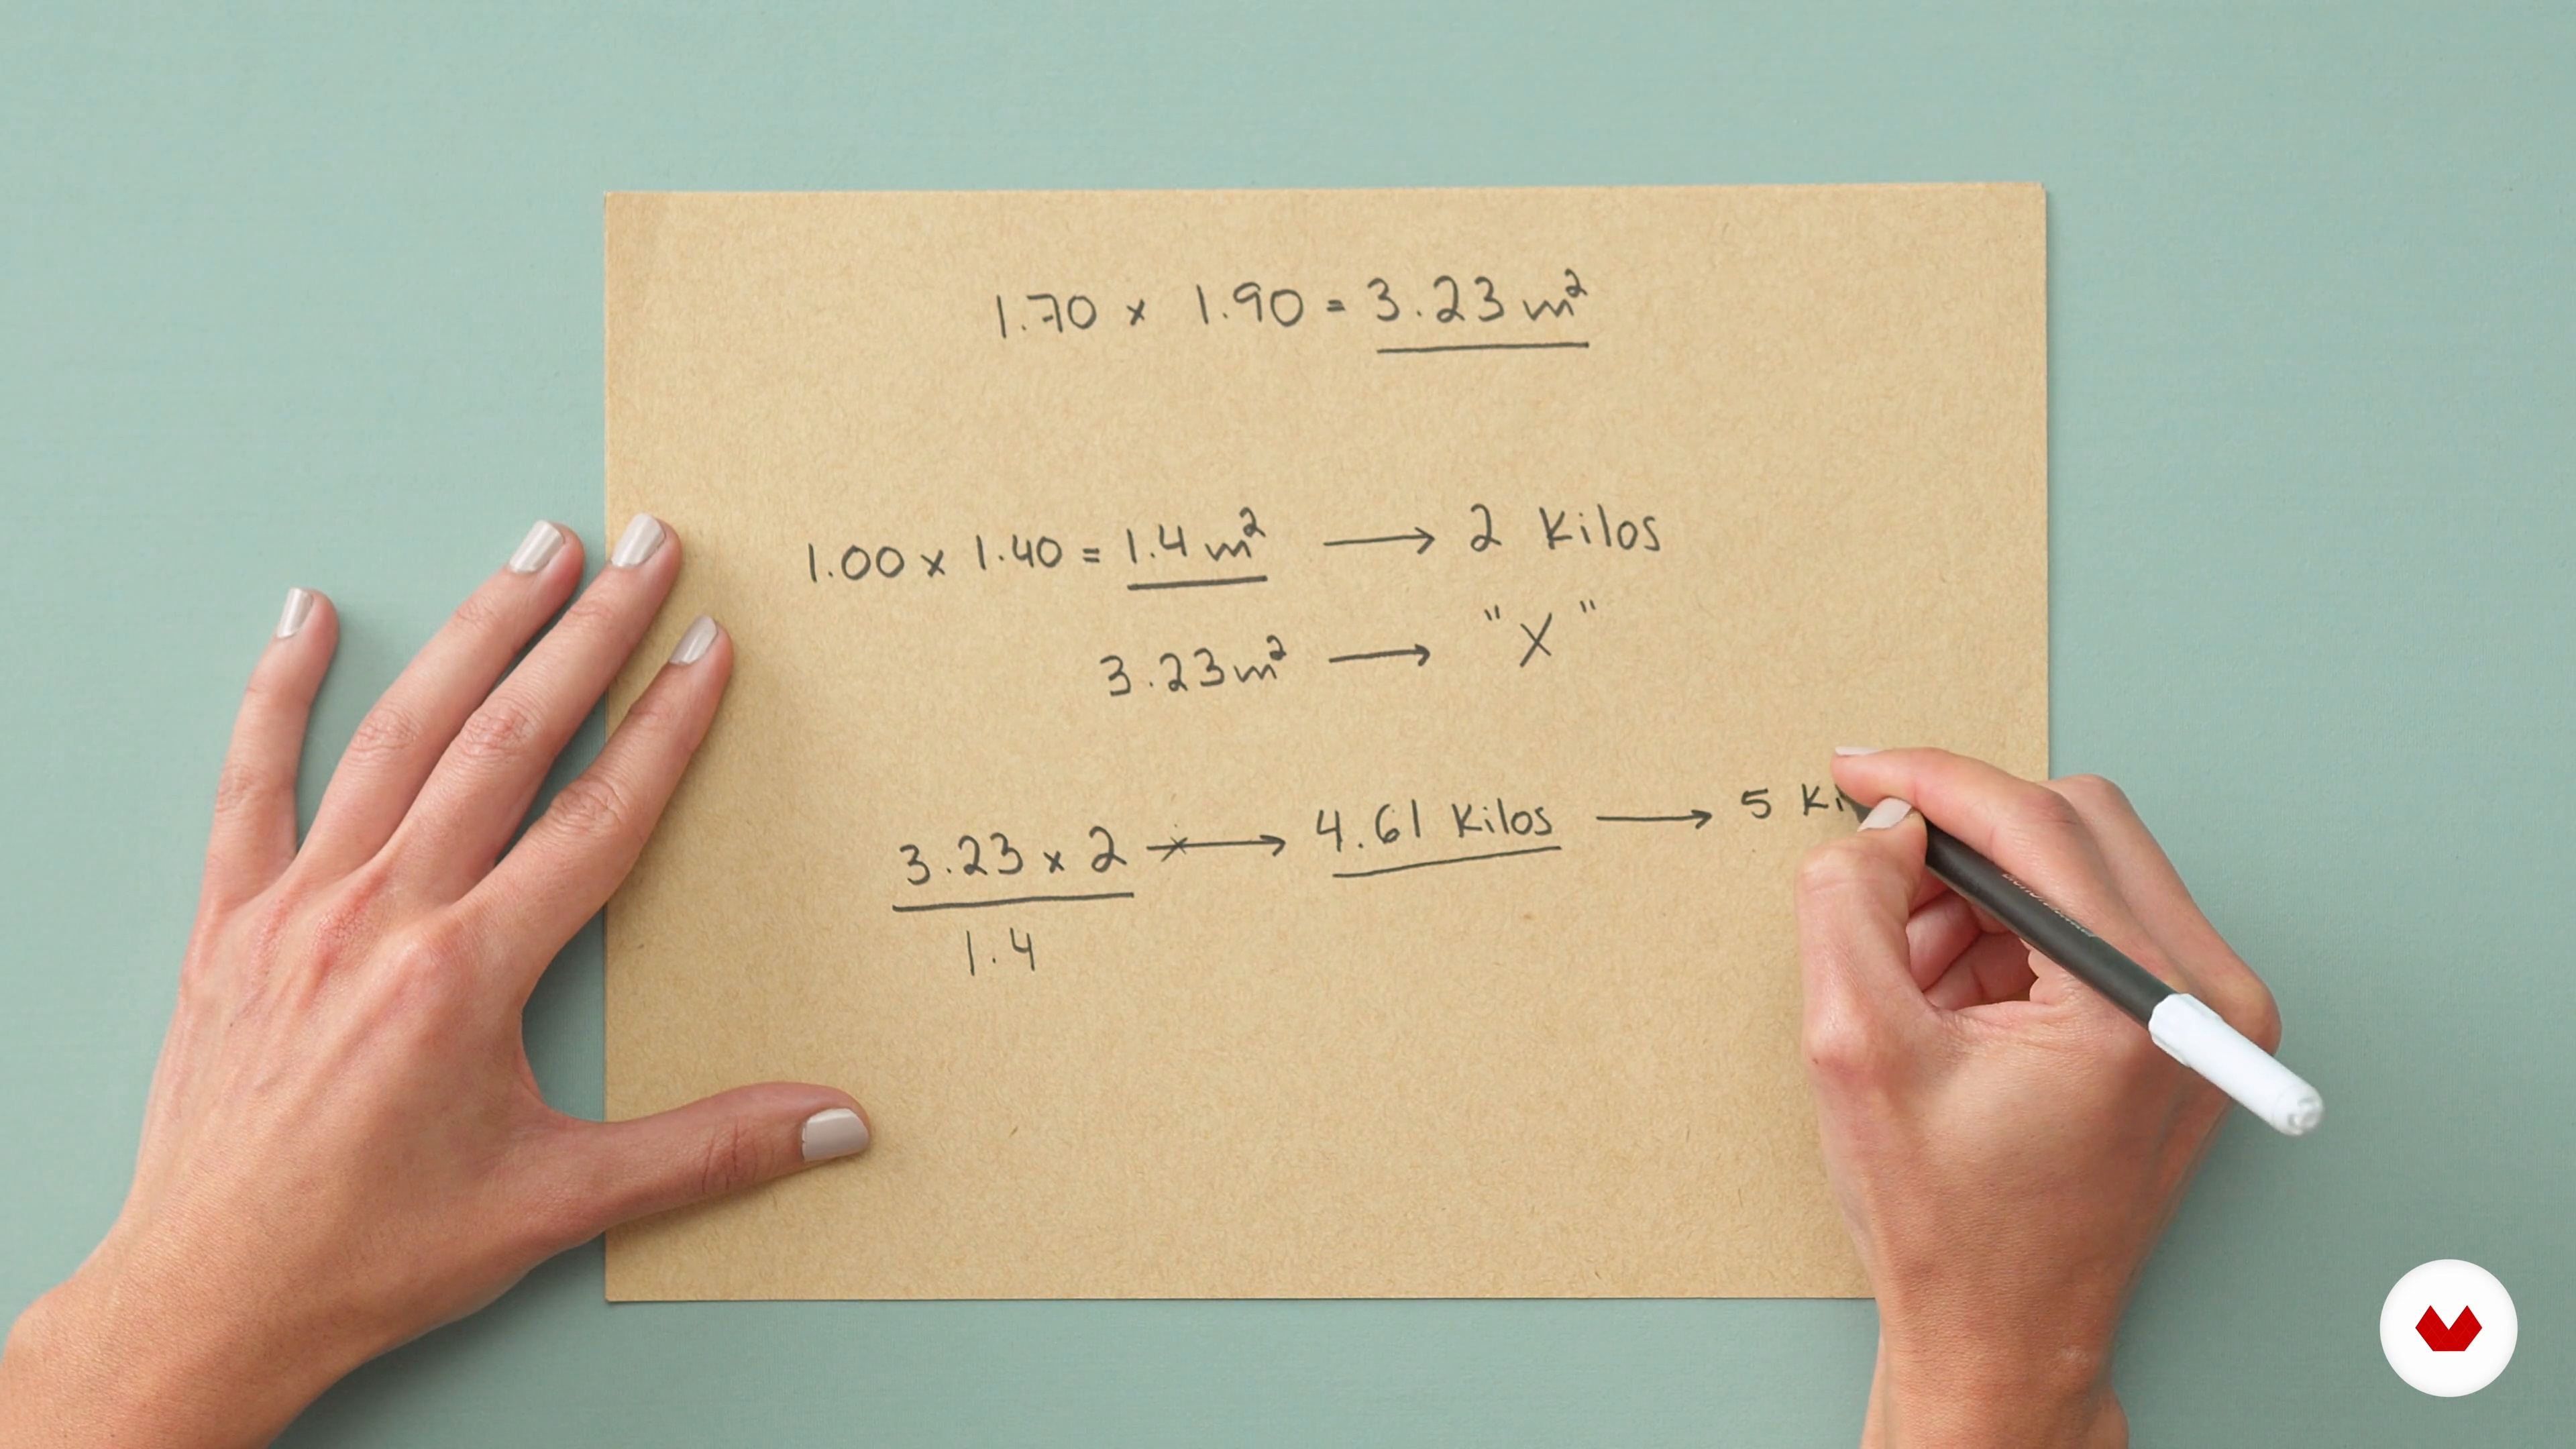 1.70 x 1.90 = 3.23 m²
1.00 x 1.40 = 1.4 m² → 2 Kilos
3.23 m² → "X"
3.23 x 2 → 4.61 Kilos → 5 Ki
1.4